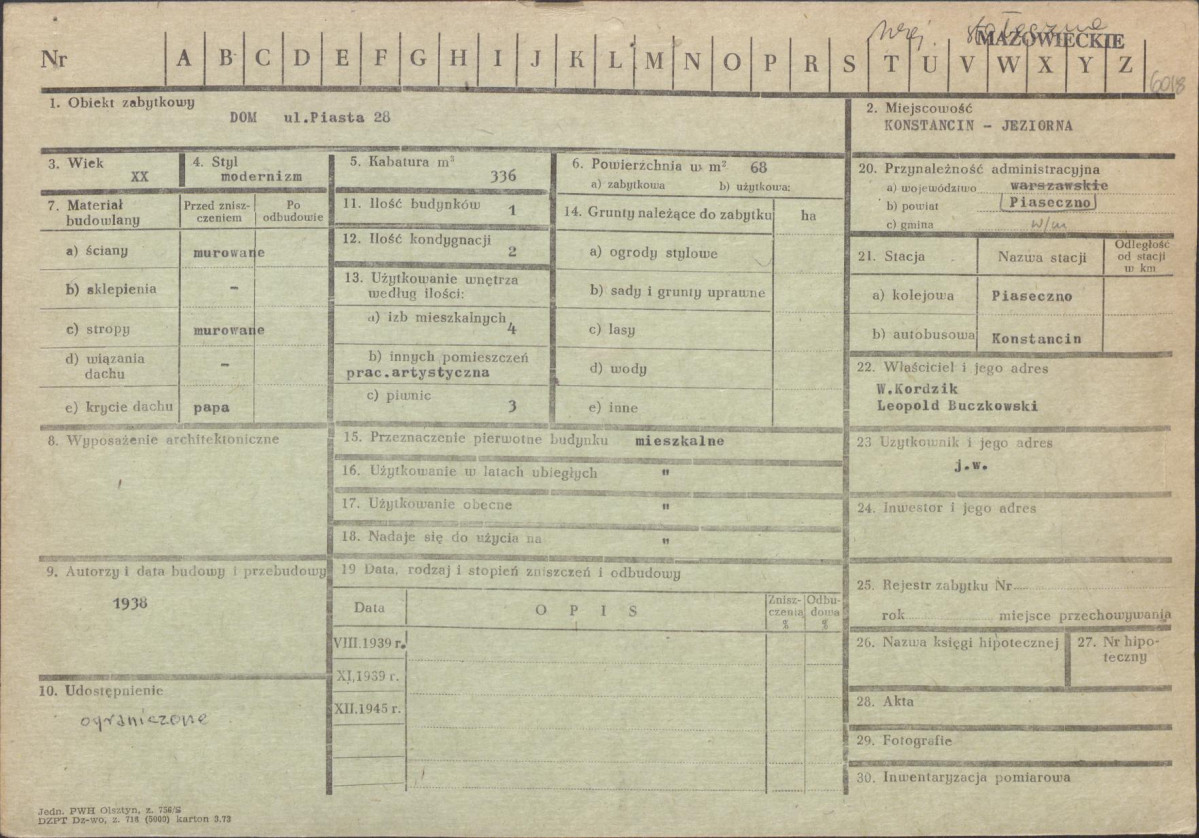 woj. stołeczne
MAZOWIECKIE
Nr A B C D E F G H I J K L M N O P R S T U V W X Y Z
6018
1. Obiekt zabytkowy
DOM ul.Piasta 28
2. Miejscowość
KONSTANCIN - JEZIORNA
3. Wiek
XX
4. Styl
modernizm
5. Kabatura m³
336
6. Powierzchnia w m² 68
a) zabytkowa b) użytkowa:
20. Przynależność administracyjna
a) województwo warszawskie
b) powiat Piaseczno
c) gmina w/m
7. Materiał budowlany
Przed znisz-
czeniem
Po
odbudowie
a) ściany murowane
b) sklepienia -
c) stropy murowane
d) wiązania
dachu -
e) krycie dachu papa
11. Ilość budynków 1
12. Ilość kondygnacji
2
13. Użytkowanie wnętrza
według ilości:
a) izb mieszkalnych
4
b) innych pomieszczeń
prac.artystyczna
c) piwnic
3
14. Grunty należące do zabytku ha
a) ogrody stylowe
b) sady i grunty uprawne
c) lasy
d) wody
e) inne
21. Stacja Nazwa stacji
Odległość
od stacji
w km
a) kolejowa Piaseczno
b) autobusowa Konstancin
22. Właściciel i jego adres
W.Kordzik
Leopold Buczkowski
8. Wyposażenie architektoniczne
15. Przeznaczenie pierwotne budynku mieszkalne
16. Użytkowanie w latach ubiegłych "
17. Użytkowanie obecne "
18. Nadaje się do użycia na "
23 Użytkownik i jego adres
j.w.
24. Inwestor i jego adres
9. Autorzy i data budowy i przebudowy
1938
19 Data, rodzaj i stopień zniszczeń i odbudowy
Data OPIS
Znisz-
czenia
%
Odbu-
dowa
%
VIII.1939 r.
XI.1939 r.
XII.1945 r.
25. Rejestr zabytku Nr
rok miejsce przechowywania
26. Nazwa księgi hipotecznej
27. Nr hipo-
teczny
10. Udostępnienie
ograniczone
28. Akta
29. Fotografie
30. Inwentaryzacja pomiarowa
Jedn. PWH Olsztyn, z. 756/S
DZPT Dz-wo, z. 718 (5000) karton 3.73